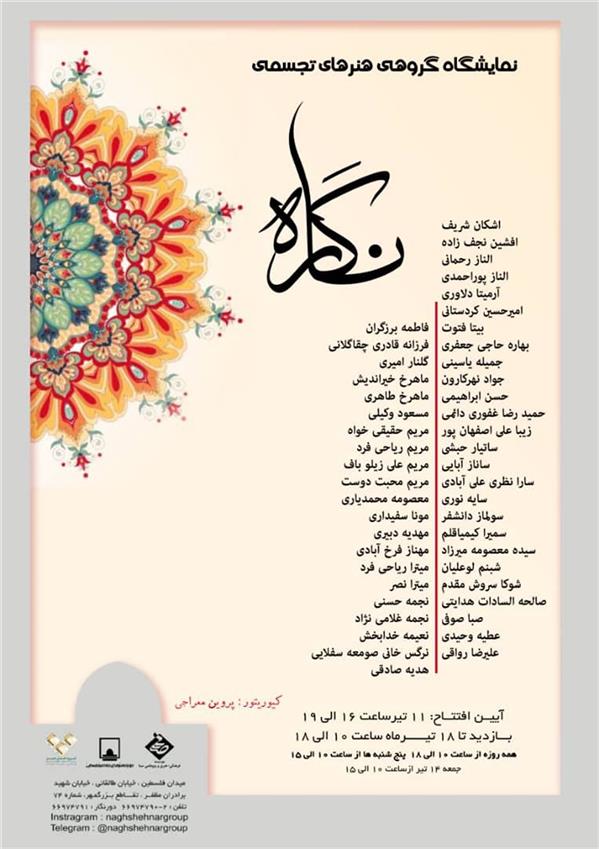 نمایشگاه گروهی هنرهای تجسمی
نگاره
اشکان شریف
افشین نجف زاده
الناز رحمانی
الناز پوراحمدی
آرمیتا دلاوری
امیرحسین کردستانی
بیتا فتوت
بهاره حاجی جعفری
جمیله یاسینی
جواد نهرکارون
حسن ابراهیمی
حمید رضا غفوری دائمی
زیبا علی اصفهان پور
ساتیار حبشی
ساناز آبایی
سارا نظری علی آبادی
سایه نوری
سولماز دانشفر
سمیرا کیمیاقلم
سیده معصومه میرزاد
شبنم لوعلیان
شوکا سروش مقدم
صالحه السادات هدایتی
صبا صوفی
عطیه وحیدی
علیرضا رواقی
فاطمه برزگران
فرزانه قادری چقاگلانی
گلنار امیری
ماهرخ خیراندیش
ماهرخ طاهری
مسعود وکیلی
مریم حقیقی خواه
مریم ریاحی فرد
مریم علی زیلو باف
مریم محبت دوست
معصومه محمدیاری
مونا سفیداری
مهدیه دبیری
مهناز فرخ آبادی
میترا ریاحی فرد
میترا نصر
نجمه حسنی
نجمه غلامی نژاد
نعیمه خدابخش
نرگس خانی صومعه سفلایی
هدیه صادقی
کیوریتور : پروین معراجی
آیین افتتاح: ۱۱ تیرساعت ۱۶ الی ۱۹
بازدید تا ۱۸ تیرماه ساعت ۱۰ الی ۱۸
همه روزه از ساعت ۱۰ الی ۱۸ پنج شنبه ها از ساعت ۱۰ الی ۱۵
جمعه ۱۴ تیر ازساعت ۱۰ الی ۱۵
میدان فلسطین ، خیابان طالقانی ، خیابان شهید
برادران مظفر ، تقاطع بزرگمهر، شماره ۷۴
تلفن : ۲-۶۶۹۷۴۷۹۰ دورنگار : ۶۶۹۷۴۷۹۱
Instragram : naghshehnargroup
Telegram : @naghshehnargroup